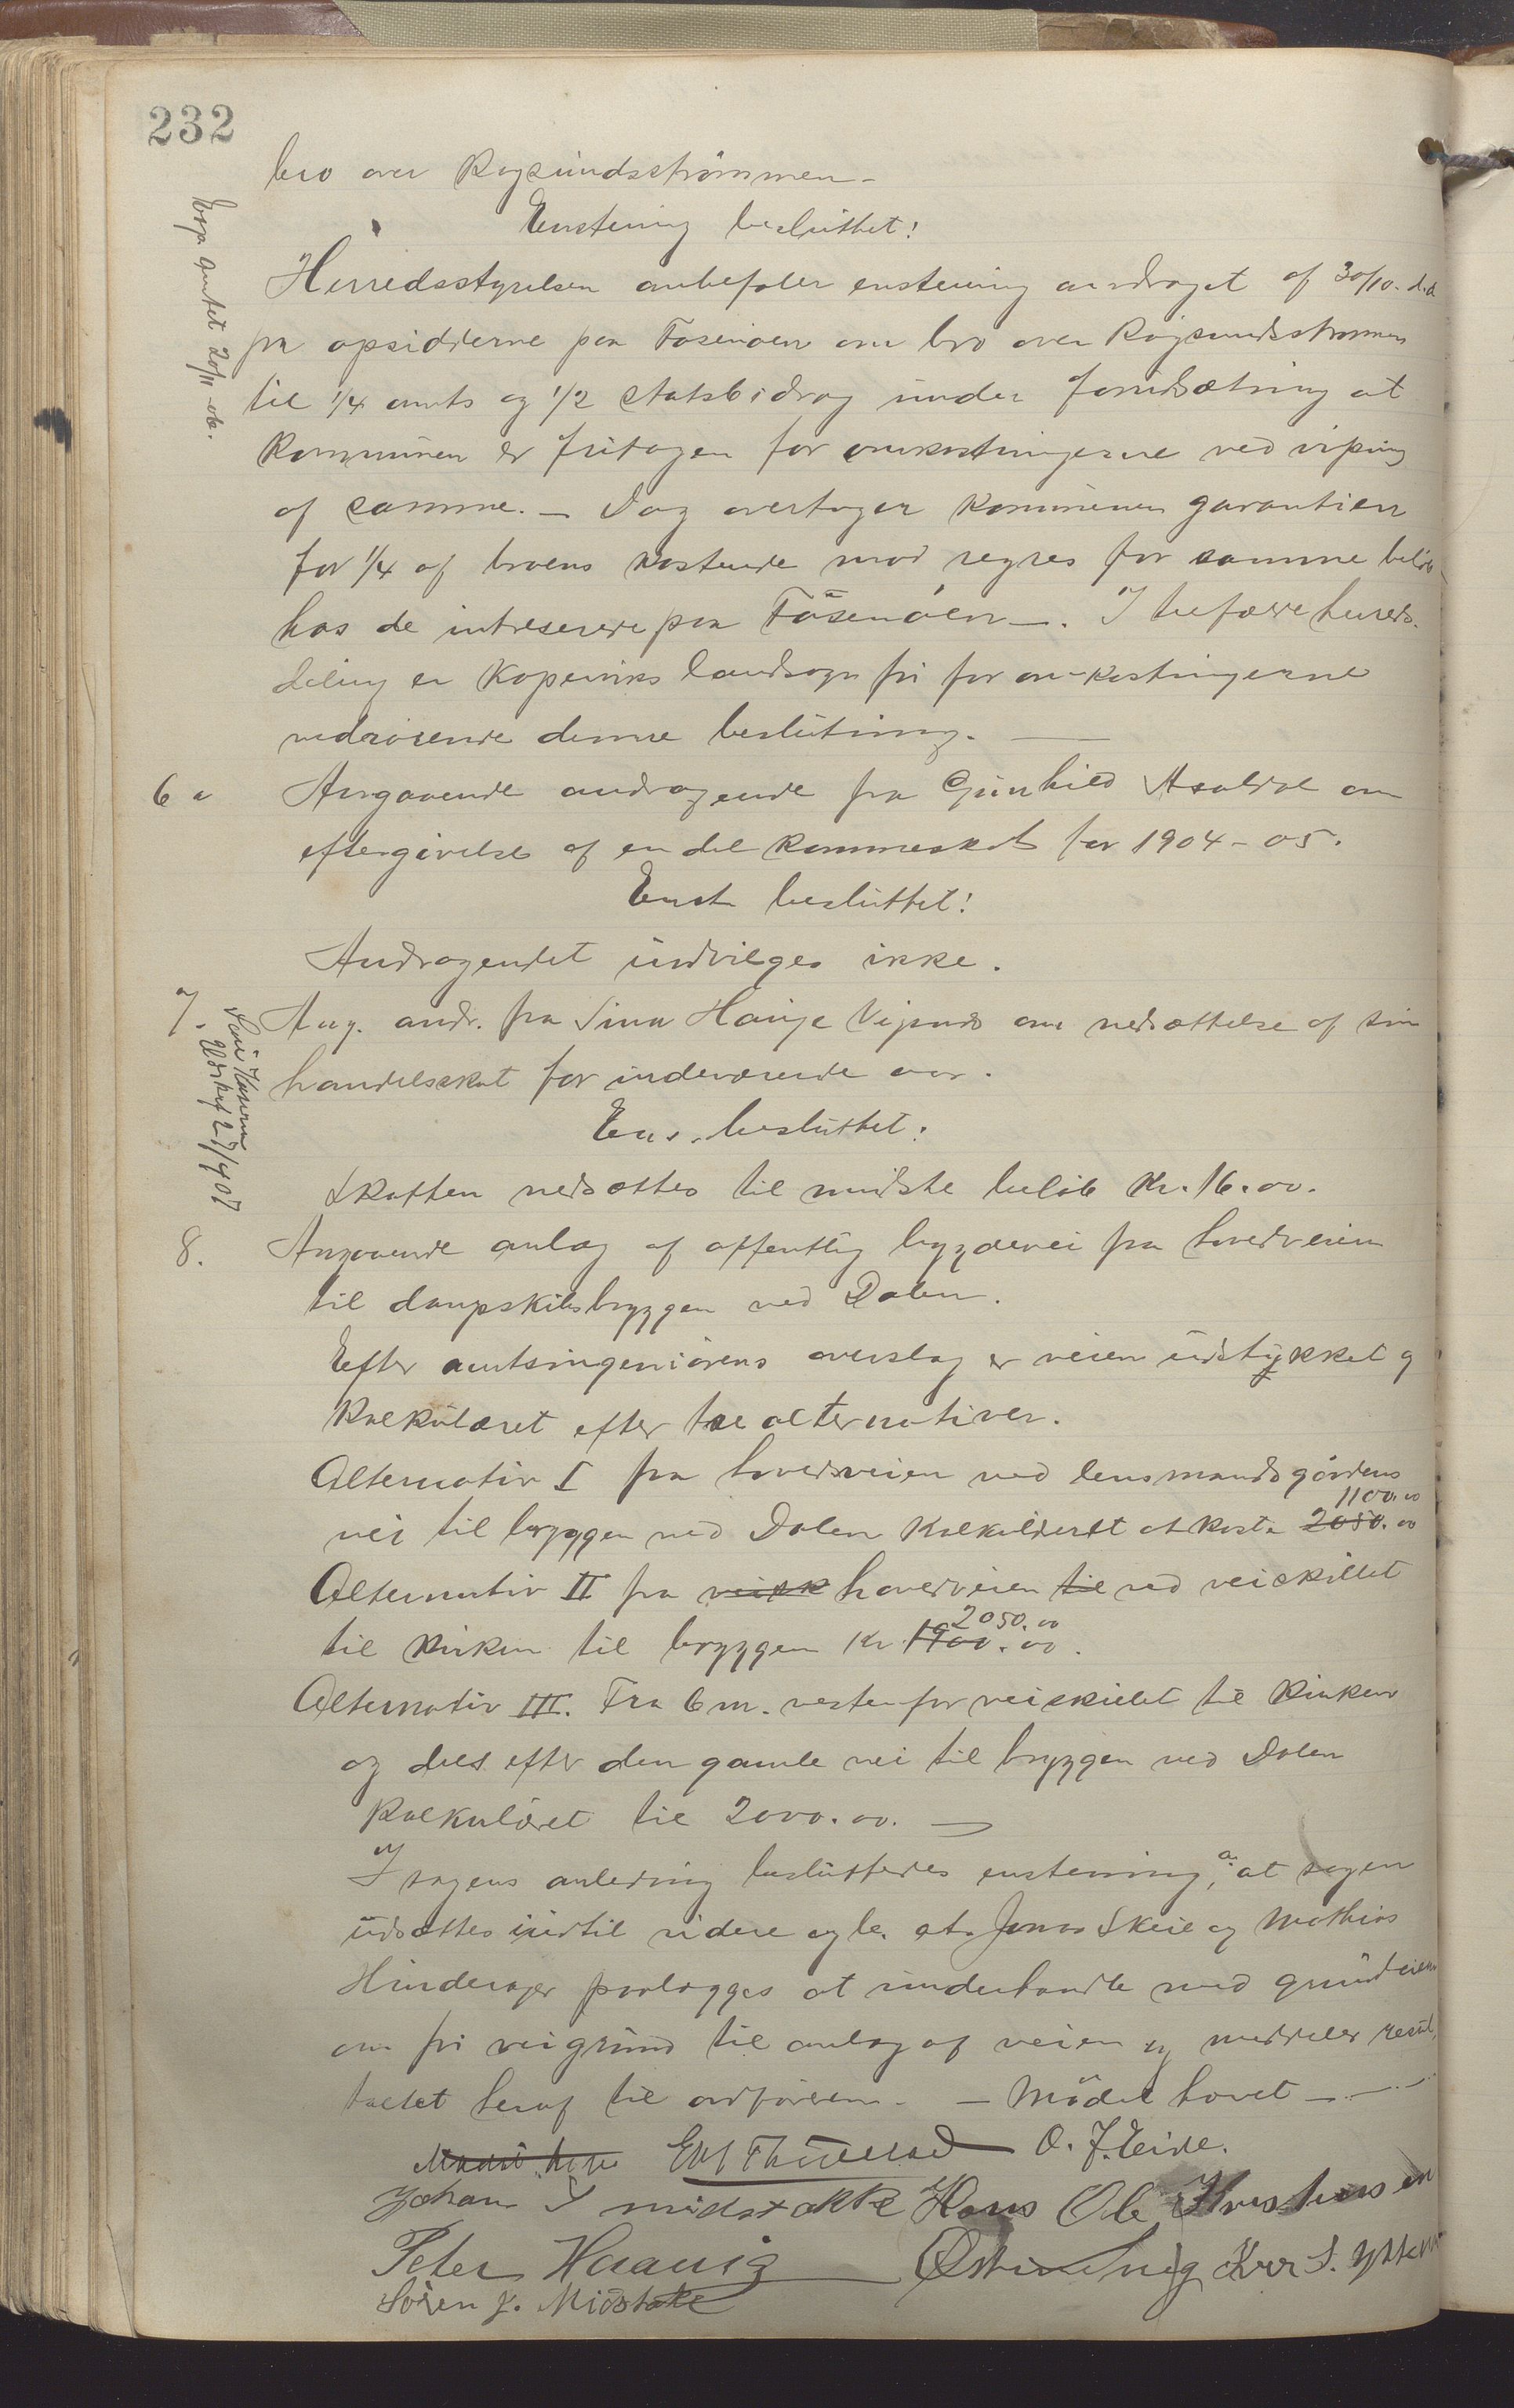 232
bro over Røgsundsstrømmen -
Enstemig besluttet!
Exp. amtet 20/11 -06.
Herredsstyrelsen anbefaler enstemig andraget af 30/10. d.a.
fra opsidderne paa Fosenøen om bro over Røgsundsstrømmen
til 1/4 amts og 1/2 statsbidrag under forudsætning at
kommunen er fritagen for omkostningerne ved
af samme. - Dog overtager kommunen garantien
for 1/4 af broens kostende mod regres for samme beløb
hos de intreserede paa Fosenøen -. I tilfælde herreds-
deling er Koperviks landsogn fri for omkostningerne
vedrørende denne beslutning. -
6 Angaaende andragende fra Gunhild Asaldal om
eftergivelse af en del kommeskat for 1904-05.
Enst besluttet!
Andragendet indvilges ikke.
7. Ang. andr. fra Sina Hauge Vigsnes om nedsættelse af sin
handelsskat for indeværende aar.
Udskr 27/4 07
Ens. besluttet:
Skatten nedsættes til mindste beløb Kr. 16.00.
8. Angaaende anlæg af offentlig bygdevei fra hovedveien
til dampskibsbryggen ved Dalen.
Efter amtsingeniørens overslag er veien udstykket og
kalkulæret efter tre alternativer.
Alternativ I fra hovedveien ved lensmandsgårdens
1100.00
vei til bryggen ved Dalen kalkuleret at koste 2050.00
Alternativ II fra veisk hovedveien til ved veiskillet
2050.00
til kirken til bryggen Kr. 1900.00.
Alternativ III. Fra 6 m. vestenfor veiskillet til Kirken
og dels efter den gamle vei til bryggen ved Dalen
kalkuleret til 2000.00. -
I sagens anledning besluttedes enstemig, a: at sagen
udsættes indtil videre og b. at Jonas Skeie og Mathias
Hinderager paalægges at underhandle med grundeiern
om fri veigrund til anlæg af veien og meddeler resul-
tatet heraf til ordføreren. - Mødet hævet -
O. J. Eide.
Johan S midstokke Hans Ole Kristensen
Peter Haavig
Sören J. Midstokke